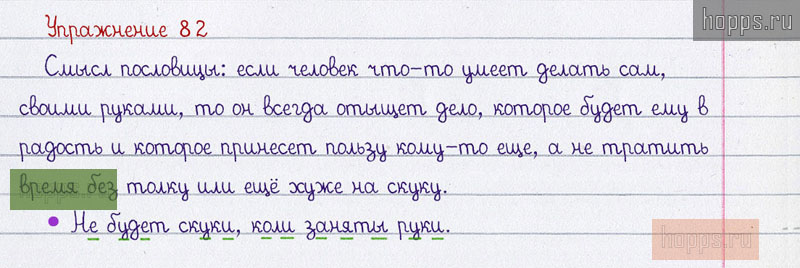 hopps.ru
Упражнение 82
Смысл пословицы: если человек что-то умеет делать сам,
своими руками, то он всегда отыщет дело, которое будет ему в
радость и которое принесет пользу кому-то еще, а не тратить
время без толку или ещё хуже на скуку.
• Не будет скуки, коли заняты руки.
hopps.ru